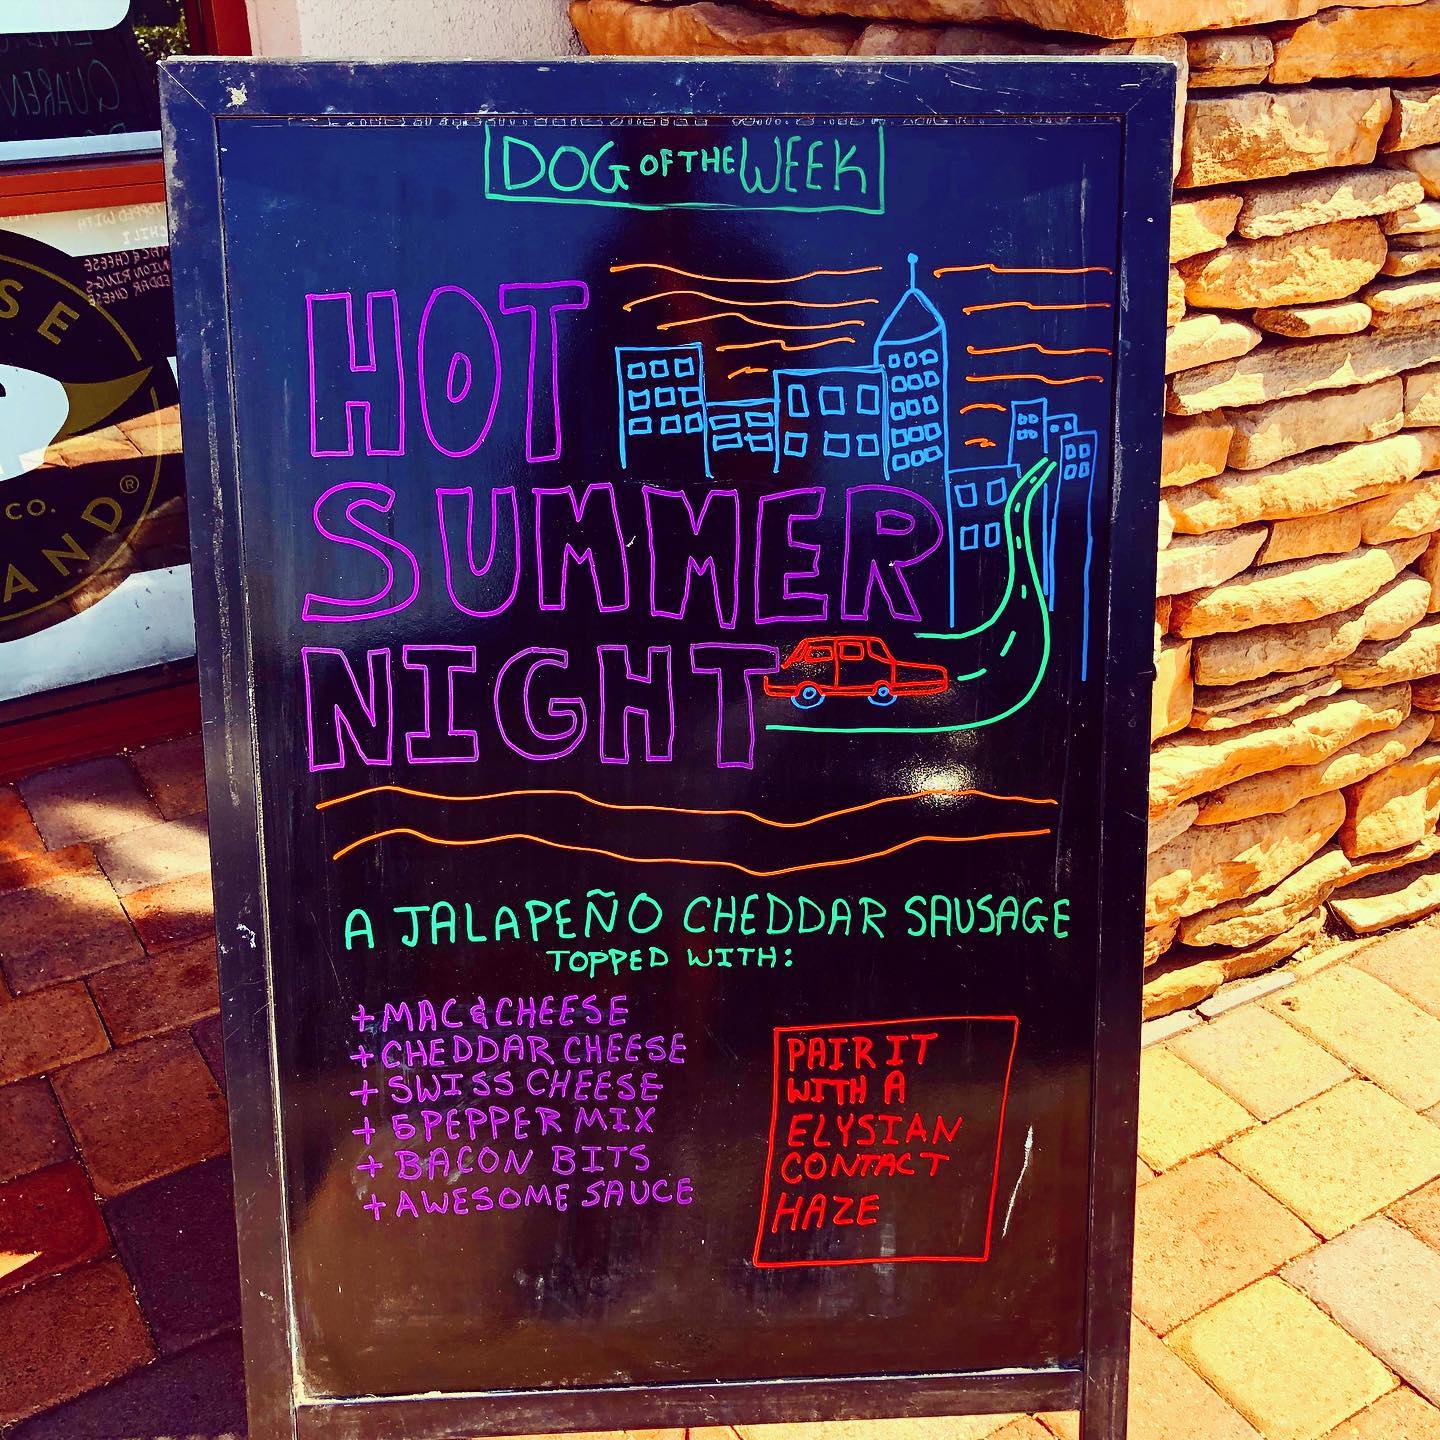 DOG OF THE WEEK
HOT
SUMMER
NIGHT
A JALAPEÑO CHEDDAR SAUSAGE
TOPPED WITH:
+ MAC & CHEESE
+ CHEDDAR CHEESE
+ SWISS CHEESE
+ 5 PEPPER MIX
+ BACON BITS
+ AWESOME SAUCE
PAIR IT
WITH A
ELYSIAN
CONTACT
HAZE
TOPPED WITH
CHILI
MAC & CHEESE
CO.